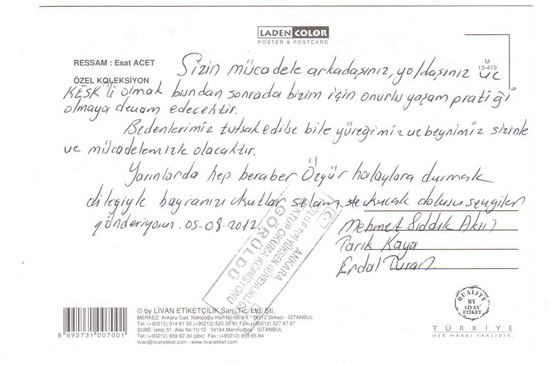 LADEN COLOR
POSTER & POSTCARD
RESSAM : Esat ACET
ÖZEL KOLEKSİYON
M
13-419
Sizin mücadele arkadaşınız, yoldaşınız ve
KESK'li olmak bundan sonrada bizim için onurlu yaşam pratiği
olmaya devam edecektir.
Bedenlerimiz tutsak edilse bile yüreğimiz ve beynimiz sizinle
ve mücadelemizle olacaktır.
Yarınlarda hep beraber Özgür halaylara durmak
dileğiyle bayramınızı kutlar selam ve kucak dolusu sevgiler
gönderiyoruz. 05.08.2012
Mehmet Sıddık Akın
Tarık Kaya
Erdal Turan
ANKARA
YÜKSEK GÜVENLİKLİ
MEKTUP OKUMA KOMİSYONU
GÖRÜLDÜ
© by LİVAN ETİKETÇİLİK San. Tic. Ltd. Şti.
MERKEZ: Ankara Cad. 34112 Sirkeci - İSTANBUL
Tel: (+90212) 514 81 00 (+90212) 520 26 81 Fax: (+90212) 527 87 87
34164 - İSTANBUL
Tel: (+90212) 659 62 30 (+90212) Fax: (+90212) 659 65 84
livan@livanetiket.com www.livanetiket.com
8 692731 007001
QUALITY
BY
LİVAN
ETİKET
TÜRKİYE
HER HAKKI SAKLIDIR.